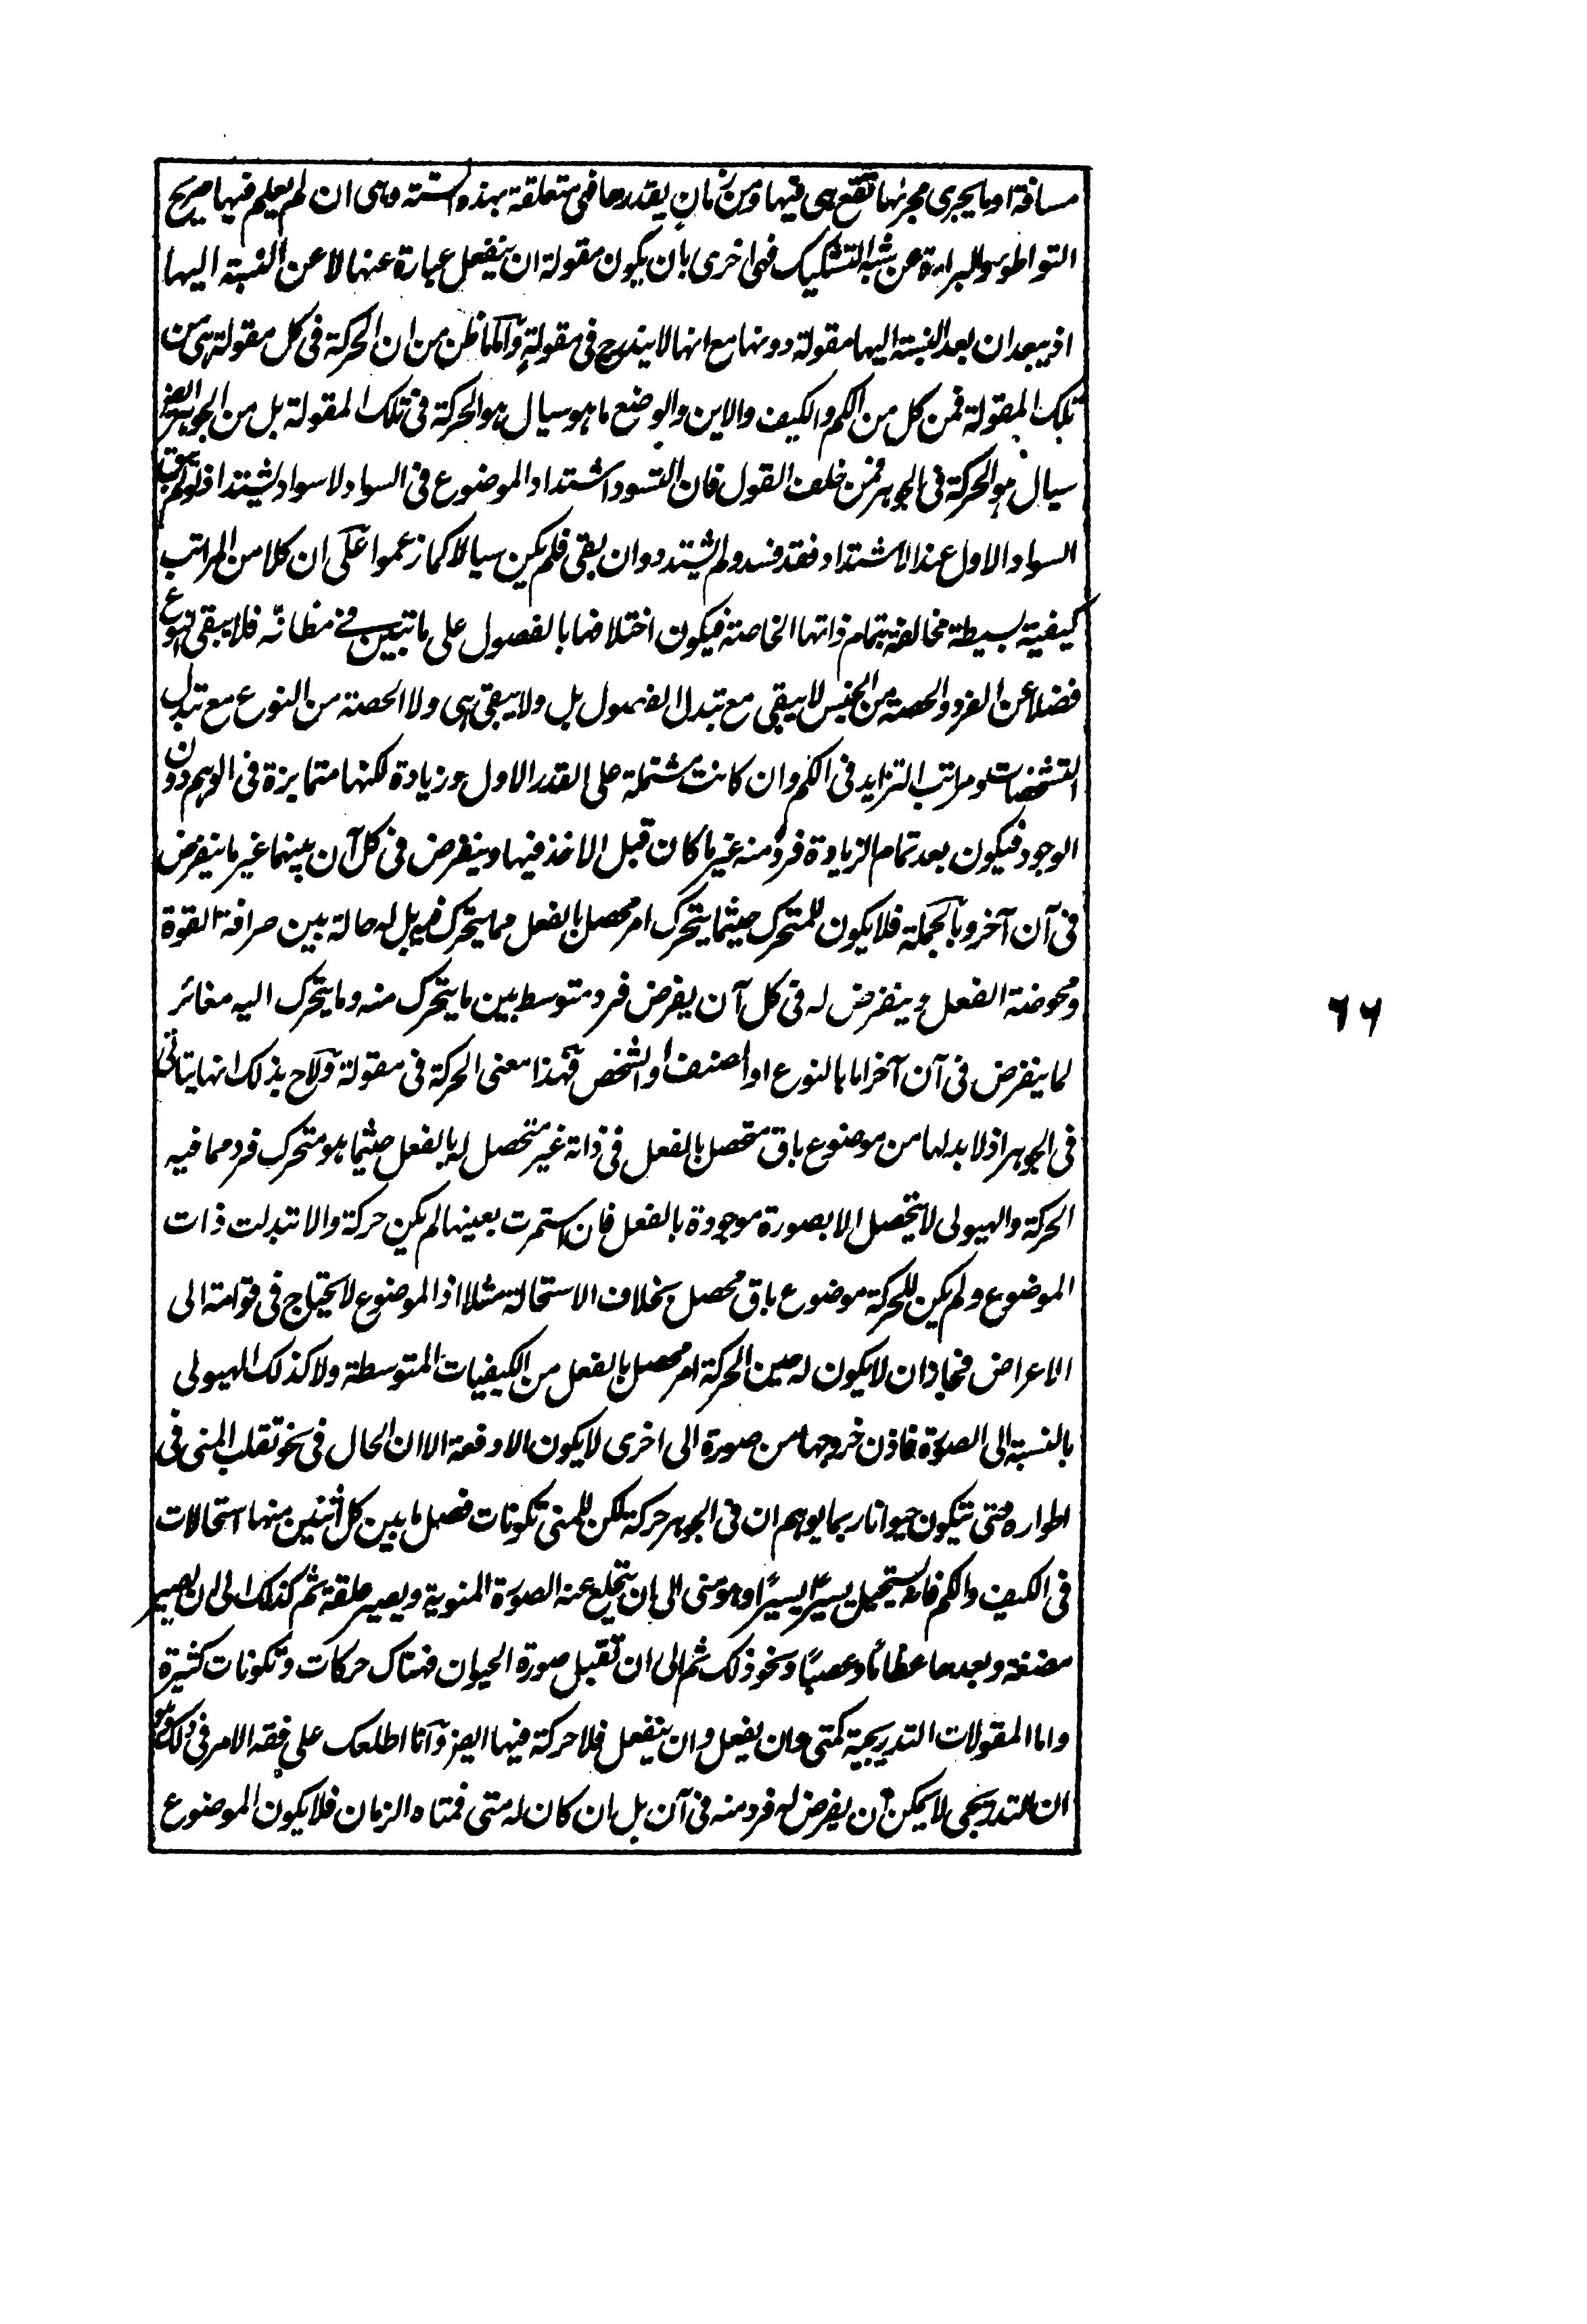 مسافة او ما يجرى مجرىها تقع هى فيها ومن زمان يقدرها فهى متعلقة بهذه الستة وهى ان لم يعلم فيها صريح
التواطوء والبراءة عن شبه التشكيك فهى اخرى بان يكون مقولة ان ينفعل عبارة عنها لا عن النسبة اليها
اذ يبعد ان يعد النسبة اليها مقولة دونها مع انها لا يندرج فى مقولة وآما ما ظن من ان الحركة فى كل مقولة هى من
تلك المقولة فمن كل من الكم والكيف والاين والوضع ما هو سيال هو الحركة فى تلك المقولة بل من الجوهر ايضر
سيال هو الحركة فى الجوهر فمن خلف القول فان التسود اشتداد الموضوع فى السواد لا سواد يشتد اذ لو لم يبق
السواد الاول عند الاشتداد فقد فسد ولم يشتد وان بقى فلم يكن سيالا كما زعموا على ان كلا من المراتب
كيفية بسيطة مخالفة بتمام ذاتها الخاصة فيكون اختلافها بالفصول على ما تبين فى مظانّه فلا يبقى النوع
فضلا عن الفرد والحصة من الجنس لا يبقى مع تبدل الفصول بل ولا يبقى هى ولا الحصة من النوع مع تبدل
التشخصات ومراتب التزايد فى الكم وان كانت مشتملة على القدر الاول وزيادة لكنها متمايزة فى الوهم دون
الوجود فيكون بعد تمام الزيادة فرد منه غير ما كان قبل الاخذ فيها وينفرض فى كل آن بينهما غير ما ينفرض
فى آن آخر وبآلجملة فلا يكون للمتحرك حيثما يتحرك امر محصل بالفعل مما يتحرك فيه بل له حالة بين صرافة القوة
ومحوضة الفعل وينفرض له فى كل آن يفرض فرد متوسط بين ما يتحرك منه وما يتحرك اليه مغائر
لما ينفرض فى آن آخر اما بالنوع او الصنف او الشخص فهذا معنى الحركة فى مقولة ولآح بذلك انها يتاتى
فى الجوهر اذ لا بد لها من موضوع باق متحصل بالفعل فى ذاته غير متحصل له بالفعل حيثما هو متحرك فرد مما فيه
الحركة والهيولى لا يتحصل الا بصورة موجودة بالفعل فان استمرت بعينها لم يكن حركة والا تبدلت ذات
الموضوع ولم يكن للحركة موضوع باق محصل بخلاف الاستحالة مثلا اذ الموضوع لا يحتاج فى قوامه الى
الاعراض فجاز ان لا يكون له حين الحركة امر محصل بالفعل من الكيفيات المتوسطة ولا كذلك الهيولى
بالنسبة الى الصورة فاذن خروجها من صورة الى اخرى لا يكون الا دفعة الا ان الحال فى نحو تقلب المنى فى
اطواره حتى يتكون حيوانا ربما يوهم ان فى الجوهر حركة لكن للمنى تكونات فصل ما بين كل اثنين منها استحالات
فى الكيف والكم فانه يستحيل يسيرًا يسيرًا وهو منى الى ان يتخلع عنه الصورة المنوية ويصير علقة ثم كذلك الى ان يصير
مضغة وبعدها عظامًا وعصبًا ونحو ذلك ثم الى ان تقبل صورة الحيوان فهناك حركات وتكونات كثيرة
واما المقولات التدريجية كمتى وان يفعل وان ينفعل فلا حركة فيها ايضر وآنا اطلعك على فقه الامر فى ذلك وهو
ان التدريجى لا يمكن ان يفرض له فرد منه فى آن بل ان كان له متى فمتاه الزمان فلا يكون الموضوع
٦٦